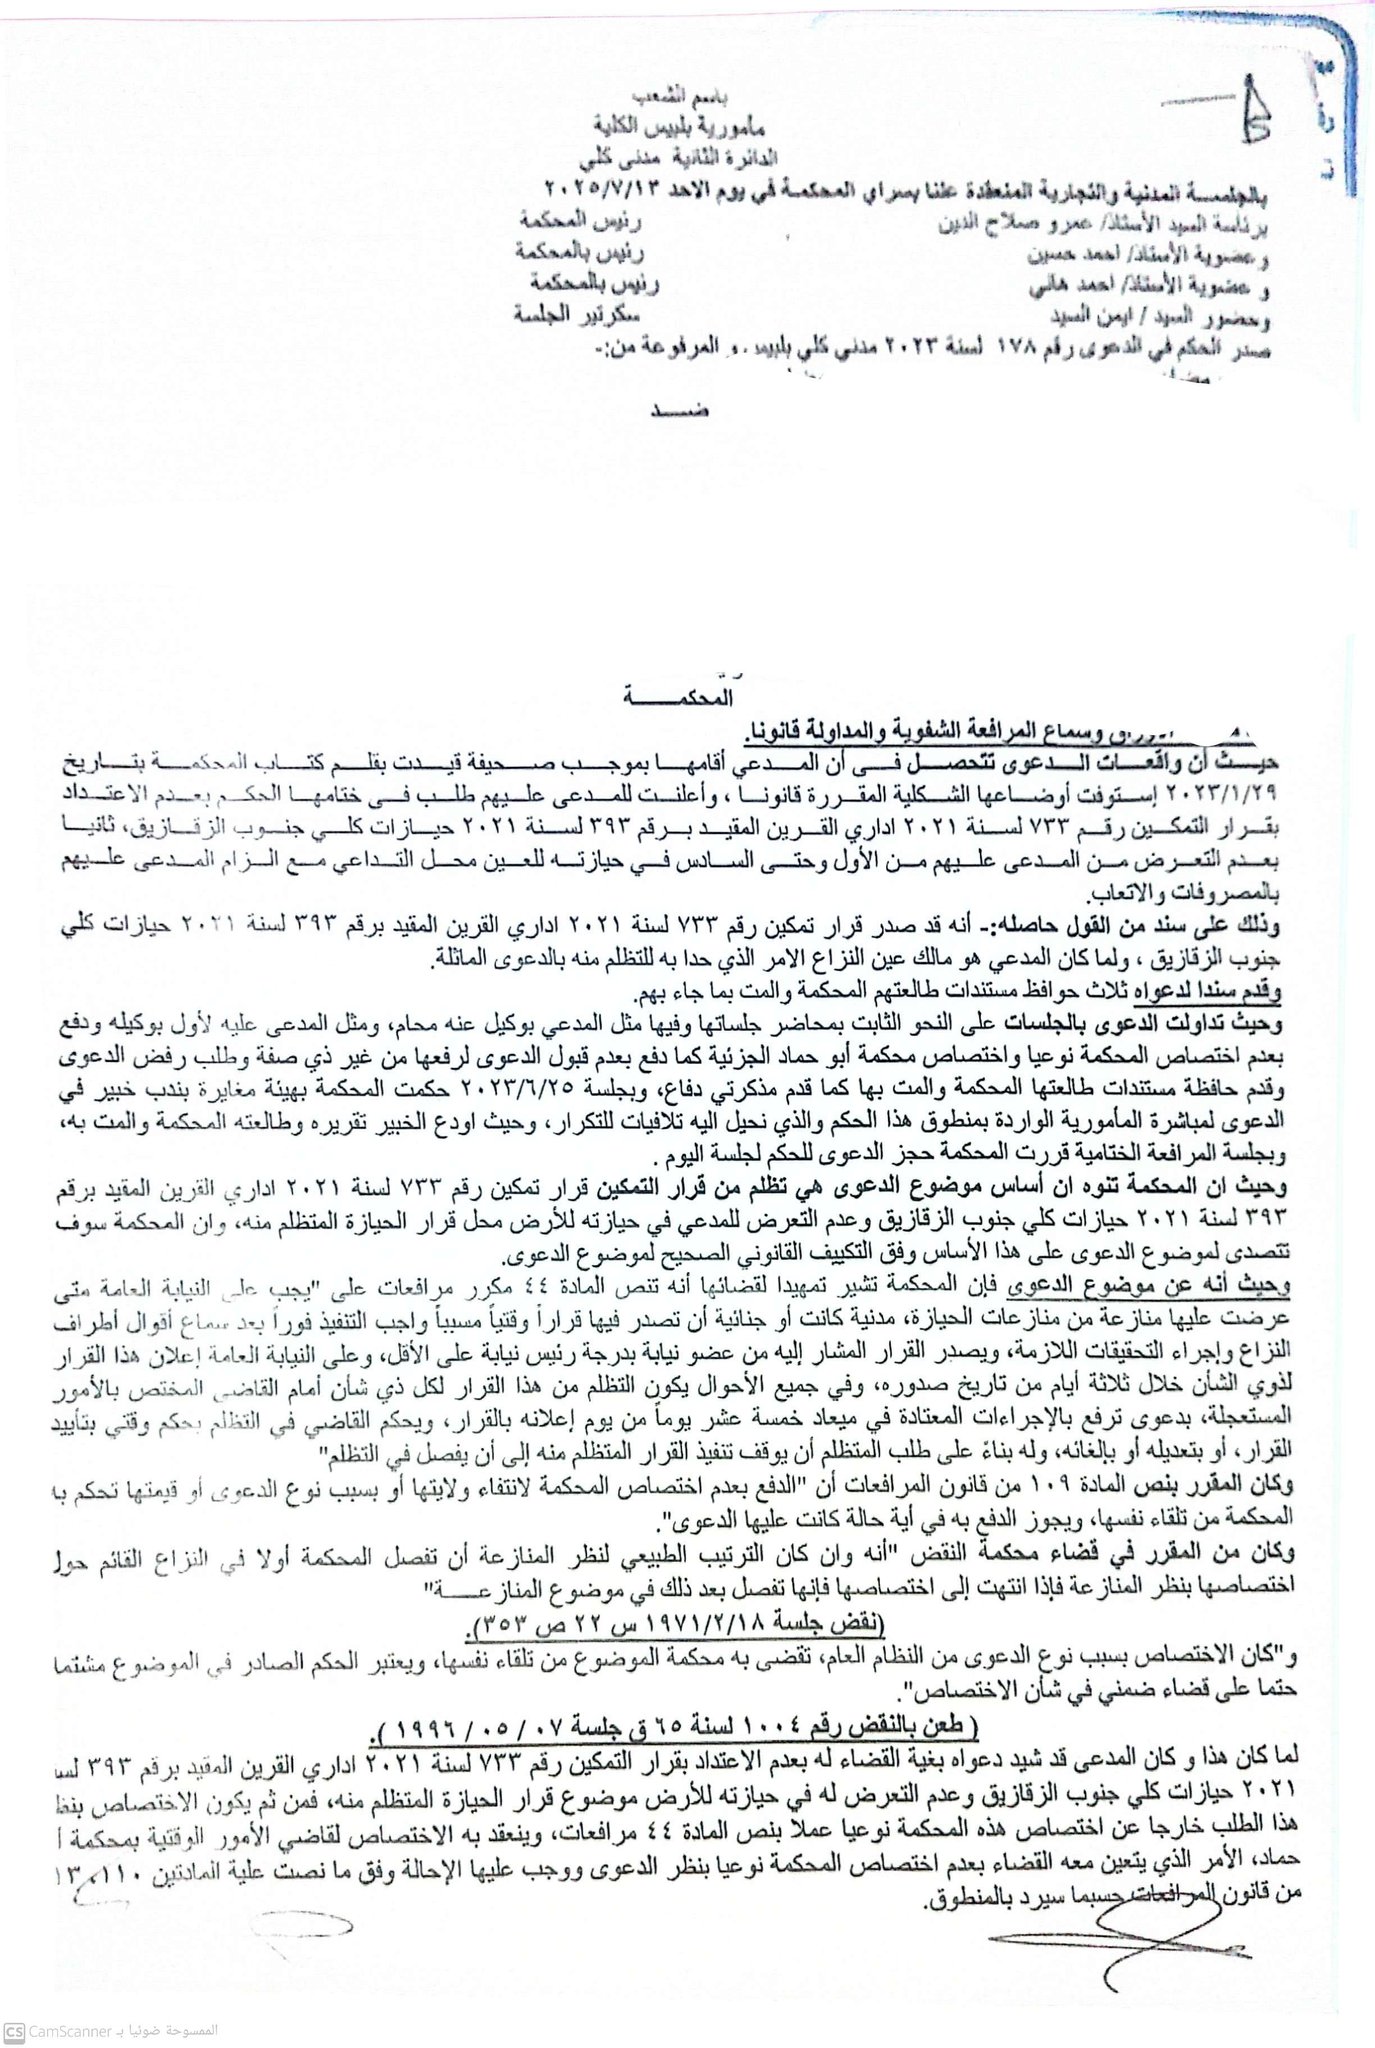 باسم الشعب
مأمورية بلبيس الكلية
الدائرة الثانية مدني كلي
بالجلسة المدنية والتجارية المنعقدة علنا بسراي المحكمة في يوم الاحد ٢٠٢٥/٧/١٣
برئاسة السيد الأستاذ/ عمرو صلاح الدين رئيس المحكمة
وعضوية الأستاذ/ احمد حسين رئيس بالمحكمة
وعضوية الأستاذ/ احمد هاني رئيس بالمحكمة
وحضور السيد / ايمن السيد سكرتير الجلسة
صدر الحكم في الدعوى رقم ١٧٨ لسنة ٢٠٢٣ مدني كلي بلبيس و المرفوعة من:-
ضــــد
المحكمــــــة
وسماع المرافعة الشفوية والمداولة قانونا.
حيث أن واقعات الدعوى تتحصل فى أن المدعي أقامها بموجب صحيفة قيدت بقلم كتاب المحكمة بتاريخ
٢٠٢٣/١/٢٩ إستوفت أوضاعها الشكلية المقررة قانونا ، وأعلنت للمدعى عليهم طلب فى ختامها الحكم بعدم الاعتداد
بقرار التمكين رقم ٧٣٣ لسنة ٢٠٢١ اداري القرين المقيد برقم ٣٩٣ لسنة ٢٠٢١ حيازات كلي جنوب الزقازيق، ثانيا
بعدم التعرض من المدعى عليهم من الأول وحتى السادس في حيازته للعين محل التداعي مع الزام المدعى عليهم
بالمصروفات والاتعاب.
وذلك على سند من القول حاصله:- أنه قد صدر قرار تمكين رقم ٧٣٣ لسنة ٢٠٢١ اداري القرين المقيد برقم ٣٩٣ لسنة ٢٠٢١ حيازات كلي
جنوب الزقازيق ، ولما كان المدعي هو مالك عين النزاع الامر الذي حدا به للتظلم منه بالدعوى الماثلة.
وقدم سندا لدعواه ثلاث حوافظ مستندات طالعتهم المحكمة والمت بما جاء بهم.
وحيث تداولت الدعوى بالجلسات على النحو الثابت بمحاضر جلساتها وفيها مثل المدعي بوكيل عنه محام، ومثل المدعى عليه لأول بوكيله ودفع
بعدم اختصاص المحكمة نوعيا واختصاص محكمة أبو حماد الجزئية كما دفع بعدم قبول الدعوى لرفعها من غير ذي صفة وطلب رفض الدعوى
وقدم حافظة مستندات طالعتها المحكمة والمت بها كما قدم مذكرتي دفاع، وبجلسة ٢٠٢٣/٦/٢٥ حكمت المحكمة بهيئة مغايرة بندب خبير في
الدعوى لمباشرة المأمورية الواردة بمنطوق هذا الحكم والذي نحيل اليه تلافيات للتكرار، وحيث اودع الخبير تقريره وطالعته المحكمة والمت به،
وبجلسة المرافعة الختامية قررت المحكمة حجز الدعوى للحكم لجلسة اليوم .
وحيث ان المحكمة تنوه ان أساس موضوع الدعوى هي تظلم من قرار التمكين قرار تمكين رقم ٧٣٣ لسنة ٢٠٢١ اداري القرين المقيد برقم
٣٩٣ لسنة ٢٠٢١ حيازات كلي جنوب الزقازيق وعدم التعرض للمدعي في حيازته للأرض محل قرار الحيازة المتظلم منه، وان المحكمة سوف
تتصدى لموضوع الدعوى على هذا الأساس وفق التكييف القانوني الصحيح لموضوع الدعوى.
وحيث أنه عن موضوع الدعوى فإن المحكمة تشير تمهيدا لقضائها أنه تنص المادة ٤٤ مكرر مرافعات على "يجب على النيابة العامة متى
عرضت عليها منازعة من منازعات الحيازة، مدنية كانت أو جنائية أن تصدر فيها قراراً وقتياً مسبباً واجب التنفيذ فوراً بعد سماع أقوال أطراف
النزاع وإجراء التحقيقات اللازمة، ويصدر القرار المشار إليه من عضو نيابة بدرجة رئيس نيابة على الأقل، وعلى النيابة العامة إعلان هذا القرار
لذوي الشأن خلال ثلاثة أيام من تاريخ صدوره، وفي جميع الأحوال يكون التظلم من هذا القرار لكل ذي شأن أمام القاضي المختص بالأمور
المستعجلة، بدعوى ترفع بالإجراءات المعتادة في ميعاد خمسة عشر يوماً من يوم إعلانه بالقرار، ويحكم القاضي في التظلم بحكم وقتي بتأييد
القرار، أو بتعديله أو بإلغائه، وله بناءً على طلب المتظلم أن يوقف تنفيذ القرار المتظلم منه إلى أن يفصل في التظلم"
وكان المقرر بنص المادة ١٠٩ من قانون المرافعات أن "الدفع بعدم اختصاص المحكمة لانتفاء ولايتها أو بسبب نوع الدعوى أو قيمتها تحكم به
المحكمة من تلقاء نفسها، ويجوز الدفع به في أية حالة كانت عليها الدعوى".
وكان من المقرر في قضاء محكمة النقض "أنه وان كان الترتيب الطبيعي لنظر المنازعة أن تفصل المحكمة أولا في النزاع القائم حول
اختصاصها بنظر المنازعة فإذا انتهت إلى اختصاصها فإنها تفصل بعد ذلك في موضوع المنازعـــة"
(نقض جلسة ١٩٧١/٢/١٨ س ٢٢ ص ٣٥٣).
و"كان الاختصاص بسبب نوع الدعوى من النظام العام، تقضى به محكمة الموضوع من تلقاء نفسها، ويعتبر الحكم الصادر في الموضوع مشتما
حتما على قضاء ضمني في شأن الاختصاص".
( طعن بالنقض رقم ١٠٠٤ لسنة ٦٥ ق جلسة ٠٧ / ٠٥ / ١٩٩٦ ).
لما كان هذا و كان المدعى قد شيد دعواه بغية القضاء له بعدم الاعتداد بقرار التمكين رقم ٧٣٣ لسنة ٢٠٢١ اداري القرين المقيد برقم ٣٩٣ لسن
٢٠٢١ حيازات كلي جنوب الزقازيق وعدم التعرض له في حيازته للأرض موضوع قرار الحيازة المتظلم منه، فمن ثم يكون الاختصاص بنظ
هذا الطلب خارجا عن اختصاص هذه المحكمة نوعيا عملا بنص المادة ٤٤ مرافعات، وينعقد به الاختصاص لقاضي الأمور الوقتية بمحكمة أ
حماد، الأمر الذي يتعين معه القضاء بعدم اختصاص المحكمة نوعيا بنظر الدعوى ووجب عليها الإحالة وفق ما نصت علية المادتين ١١٠
من قانون المرافعات حسبما سيرد بالمنطوق.
CS CamScanner الممسوحة ضوئيا بـ